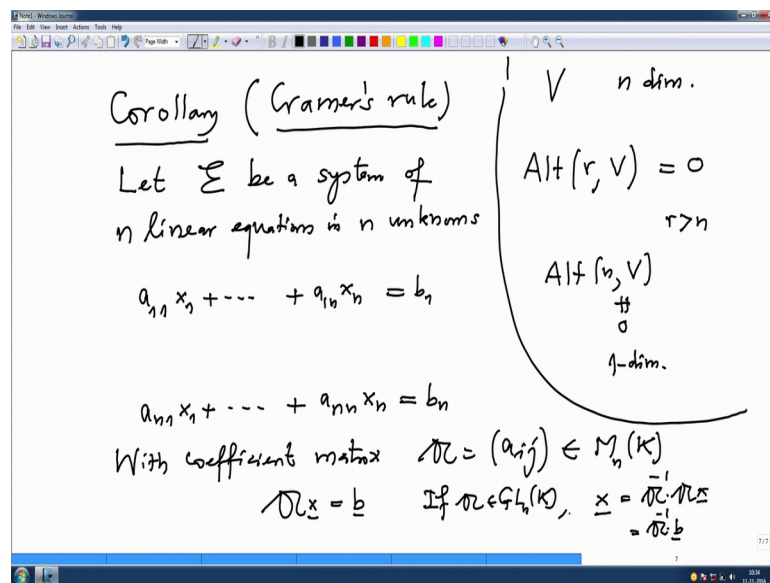 Note1 - Windows Journal
File Edit View Insert Actions Tools Help
Page Width
Corollary (Cramer's rule)
Let ℰ be a system of
n linear equations in n unknowns
a₁₁x₁ + --- + a₁ₙxₙ = b₁
aₙ₁x₁ + --- + aₙₙxₙ = bₙ
With coefficient matrix 𝔄 = (aᵢⱼ) ∈ Mₙ(K)
𝔄x = b If 𝔄 ∈ GLₙ(K), x = 𝔄⁻¹·𝔄x
= 𝔄⁻¹·b
V n dim.
Alt(r, V) = 0
r>n
Alt(n, V)
≠
0
1-dim.
7/7
7
10:34
11-11-2016